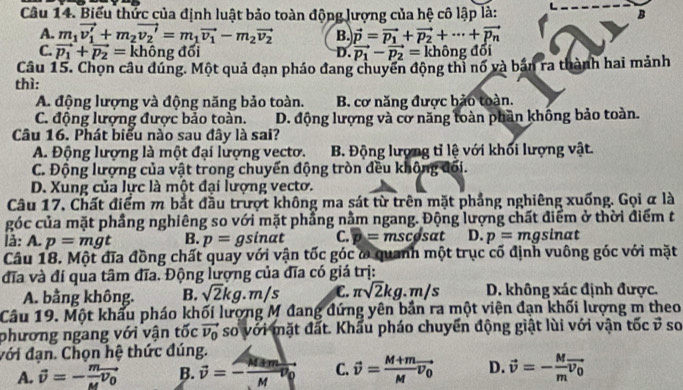 Câu 14. Biểu thức của định luật bảo toàn động lượng của hệ cô lập là:
B
A. $m_1\vec{v_1'} + m_2\vec{v_2'} = m_1\vec{v_1} - m_2\vec{v_2}$ B. $\vec{p} = \vec{p_1} + \vec{p_2} + \cdots + \vec{p_n}$
C. $\vec{p_1} + \vec{p_2}$ = không đổi D. $\vec{p_1} - \vec{p_2}$ = không đổi
Câu 15. Chọn câu đúng. Một quả đạn pháo đang chuyển động thì nổ và bắn ra thành hai mảnh
thì:
A. động lượng và động năng bảo toàn. B. cơ năng được bảo toàn.
C. động lượng được bảo toàn. D. động lượng và cơ năng toàn phần không bảo toàn.
Câu 16. Phát biểu nào sau đây là sai?
A. Động lượng là một đại lượng vectơ. B. Động lượng tỉ lệ với khối lượng vật.
C. Động lượng của vật trong chuyển động tròn đều không đổi.
D. Xung của lực là một đại lượng vectơ.
Câu 17. Chất điểm m bắt đầu trượt không ma sát từ trên mặt phẳng nghiêng xuống. Gọi α là
góc của mặt phẳng nghiêng so với mặt phẳng nằm ngang. Động lượng chất điểm ở thời điểm t
là: A. p = mgt B. p = gsinαt C. p = mscosαt D. p = mgsinαt
Câu 18. Một đĩa đồng chất quay với vận tốc góc ω quanh một trục cố định vuông góc với mặt
đĩa và đi qua tâm đĩa. Động lượng của đĩa có giá trị:
A. bằng không. B. √2kg.m/s C. π√2kg.m/s D. không xác định được.
Câu 19. Một khẩu pháo khối lượng M đang đứng yên bắn ra một viên đạn khối lượng m theo
phương ngang với vận tốc $\vec{v_0}$ so với mặt đất. Khẩu pháo chuyển động giật lùi với vận tốc $\vec{v}$ so
với đạn. Chọn hệ thức đúng.
A. $\vec{v} = -\frac{m}{M}\vec{v_0}$ B. $\vec{v} = -\frac{M+m}{M}\vec{v_0}$ C. $\vec{v} = \frac{M+m}{M}\vec{v_0}$ D. $\vec{v} = -\frac{M}{m}\vec{v_0}$